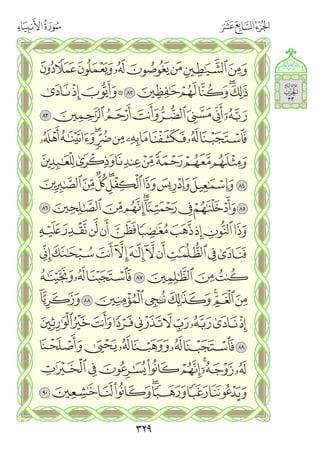 الجُزْءُ السَّابِعَ عَشَرَ سُورَةُ الأَنبِيَاءِ
وَمِنَ ٱلشَّيَٰطِينِ مَن يَغُوصُونَ لَهُۥ وَيَعْمَلُونَ عَمَلًا دُونَ
ذَٰلِكَۖ وَكُنَّا لَهُمْ حَٰفِظِينَ ٨٢ ۞ وَأَيُّوبَ إِذْ نَادَىٰ
رَبَّهُۥٓ أَنِّي مَسَّنِيَ ٱلضُّرُّ وَأَنتَ أَرْحَمُ ٱلرَّٰحِمِينَ ٨٣
فَٱسْتَجَبْنَا لَهُۥ فَكَشَفْنَا مَا بِهِۦ مِن ضُرٍّۖ وَءَاتَيْنَٰهُ أَهْلَهُۥ
وَمِثْلَهُم مَّعَهُمْ رَحْمَةً مِّنْ عِندِنَا وَذِكْرَىٰ لِلْعَٰبِدِينَ
٨٤ وَإِسْمَٰعِيلَ وَإِدْرِيسَ وَذَا ٱلْكِفْلِۖ كُلٌّ مِّنَ ٱلصَّٰبِرِينَ
٨٥ وَأَدْخَلْنَٰهُمْ فِي رَحْمَتِنَآۖ إِنَّهُم مِّنَ ٱلصَّٰلِحِينَ ٨٦
وَذَا ٱلنُّونِ إِذ ذَّهَبَ مُغَٰضِبًا فَظَنَّ أَن لَّن نَّقْدِرَ عَلَيْهِ
فَنَادَىٰ فِي ٱلظُّلُمَٰتِ أَن لَّآ إِلَٰهَ إِلَّآ أَنتَ سُبْحَٰنَكَ إِنِّي
كُنتُ مِنَ ٱلظَّٰلِمِينَ ٨٧ فَٱسْتَجَبْنَا لَهُۥ وَنَجَّيْنَٰهُ
مِنَ ٱلْغَمِّۚ وَكَذَٰلِكَ نُۨجِي ٱلْمُؤْمِنِينَ ٨٨ وَزَكَرِيَّآ
إِذْ نَادَىٰ رَبَّهُۥ رَبِّ لَا تَذَرْنِي فَرْدًا وَأَنتَ خَيْرُ ٱلْوَٰرِثِينَ
٨٩ فَٱسْتَجَبْنَا لَهُۥ وَوَهَبْنَا لَهُۥ يَحْيَىٰ وَأَصْلَحْنَا
لَهُۥ زَوْجَهُۥٓۚ إِنَّهُمْ كَانُوا۟ يُسَٰرِعُونَ فِي ٱلْخَيْرَٰتِ
وَيَدْعُونَنَا رَغَبًا وَرَهَبًاۖ وَكَانُوا۟ لَنَا خَٰشِعِينَ ٩٠
الحِزْبُ
٣٣
٣٢٩